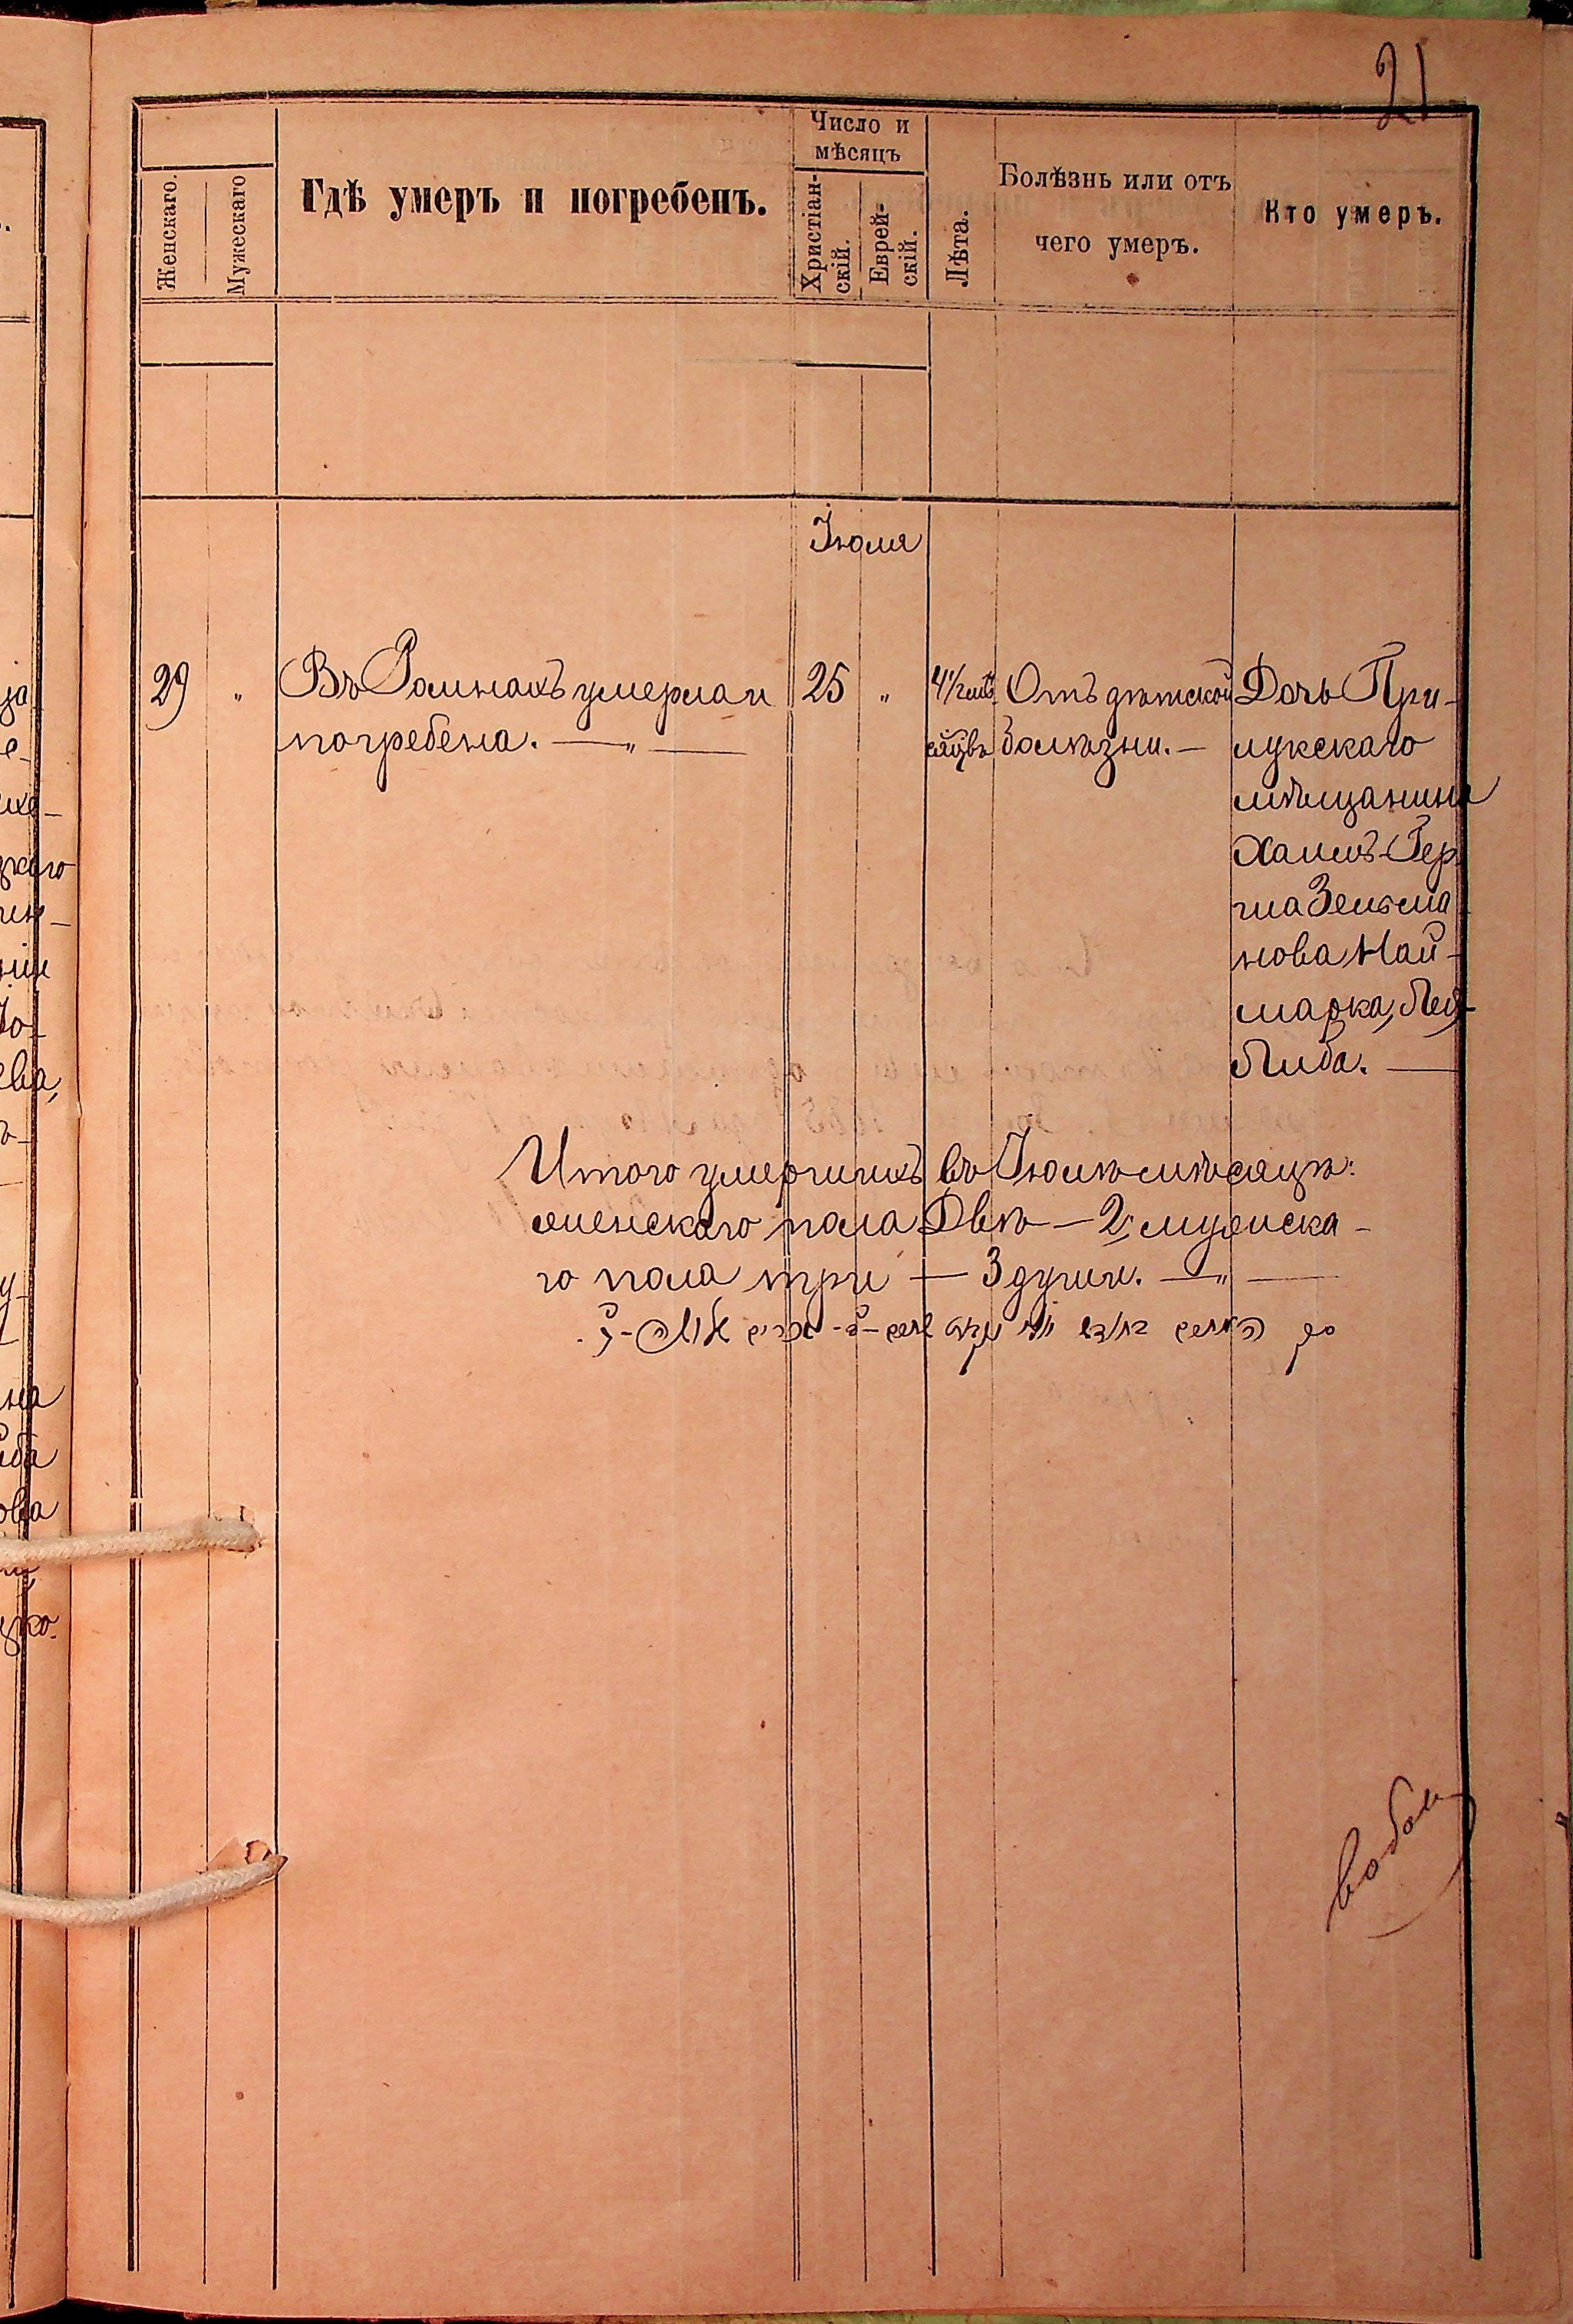 21
Женскаго.
Мужескаго
Гдѣ умеръ и погребенъ.
Число и
мѣсяцъ
Христіан-
скій.
Еврей-
скій.
Лѣта.
Болѣзнь или отъ
чего умеръ.
Кто умеръ.
Іюля
29 " Въ Ромнахъ умерла и
погребена. — " —
25 "
4½ мѣ-
сяцевъ
Отъ дѣтской
болѣзни. —
Дочь При-
лукскаго
мѣщанина
Хаимъ-Гер
ша Зельма
нова Най-
марка,
Либа. —
Итого умершихъ въ Іюлѣ мѣсяцѣ:
женскаго пола Двѣ — 2, мужска-
го пола три — 3 души. — " —